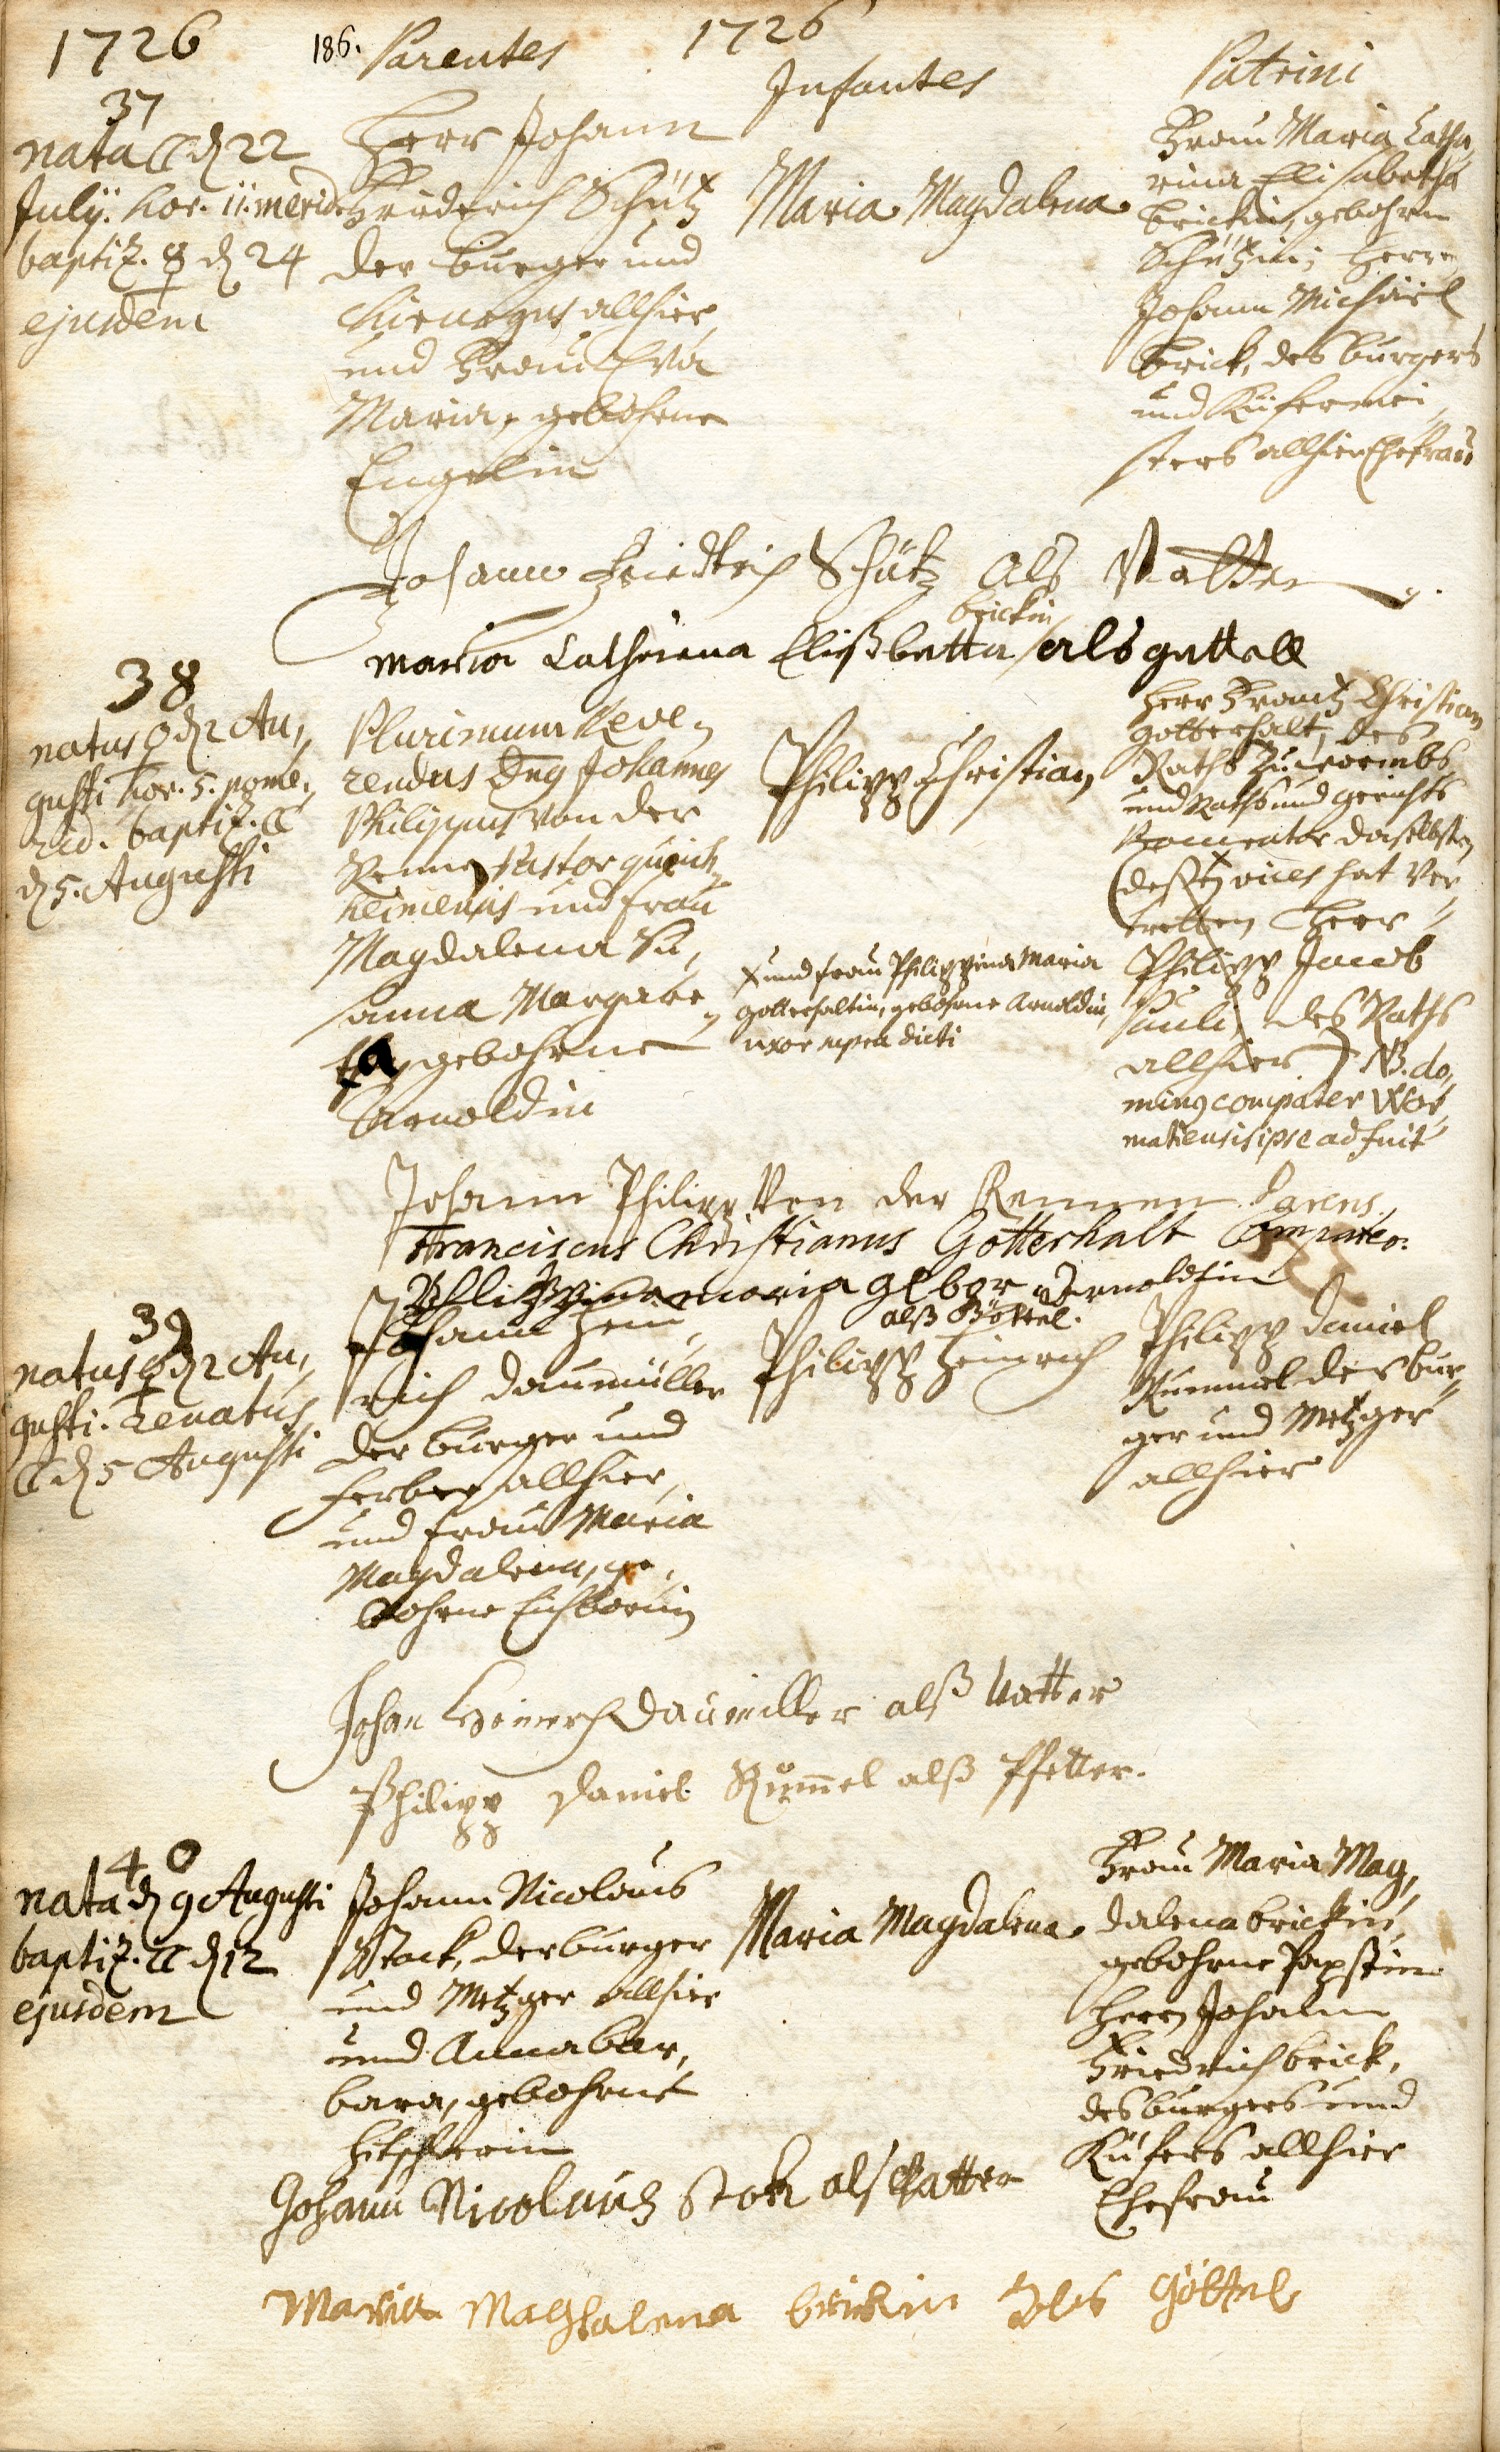 1726
186. Parentes
1726
Infantes
Patrini
37
nata ☾ d 22
July. hor. 11. merid.
baptiz. ☿ d 24
ejusdem
Herr Johann
Friederich Schütz
der burger und
Chirurgus allhier,
und Frau Eva
Maria, gebohrne
Engelin
Maria Magdalena
Frau Maria Catha,
rina Elisabetha
brickin, gebohrne
Schützin; Herrn
Johann Michael
brick, des burgers
und Küfermei,
sters allhier Ehefrau
Johann Friedrich Schütz als Vatter
brickin
maria Catharina Elißbetta als gettell
38
natus ♀ d 2 Au,
gusti hor. 5. pome,
rid. baptiz. ☾
d 5. Augusti
Plurimum Reve,
rendus Dns Johannes
Philippus von der
Rennen Pastor
und Frau
Magdalena Su,
sanna Margare,
ta, gebohrne
Arnoldin
Philipp Christian
x und Frau Philippina Maria
Gotterhaltin, gebohrne Arnoldin,
uxor supra dicti
Herr Frantz Christian
Gotterhalt, des
Raths zu wormbs
und Raths und gerichts
Procurator daselbsten
(deßen vices hat ver,
tretten Herr
Philipp Jacob
Pauli, des Raths
allhier.) NB. do,
minus compater Wor,
matiensis ipse adfuit
Johann Philipp Von der Rennen Parens.
Franciscus Christianus Gotterhalt Compater.
Phlippina maria gebor Arnoldin
alß Göttel.
39
natus ♀ d 2 Au,
gusti. renatus
☾ d 5 Augusti
Johann Hein,
rich Daumüller
der burger und
ferber allhier,
und Frau Maria
Magdalena, ge,
bohrne Eichbornin
Philipp Heinrich
Philipp Daniel
Rummel der bur,
ger und Metzger
allhier
Johan Heinrich Daumiller alß Vatter
Philipp Daniel Rummel alß Pfetter.
40
nata d 9 Augusti
baptiz. ☾ d 12
ejusdem
Johann Nicolaus
Stock, der burger
und Metzger allhier
und Anna bar,
bara, gebohrne
Maria Magdalena
Frau Maria Mag,
dalena brickin,
gebohrne Papstin
Herrn Johann
Friedrich brick,
des burgers und
Küfers allhier
Ehefrau
Johann Nicolaus Stock als Vatter
Maria Magdalena brickin als Göttel